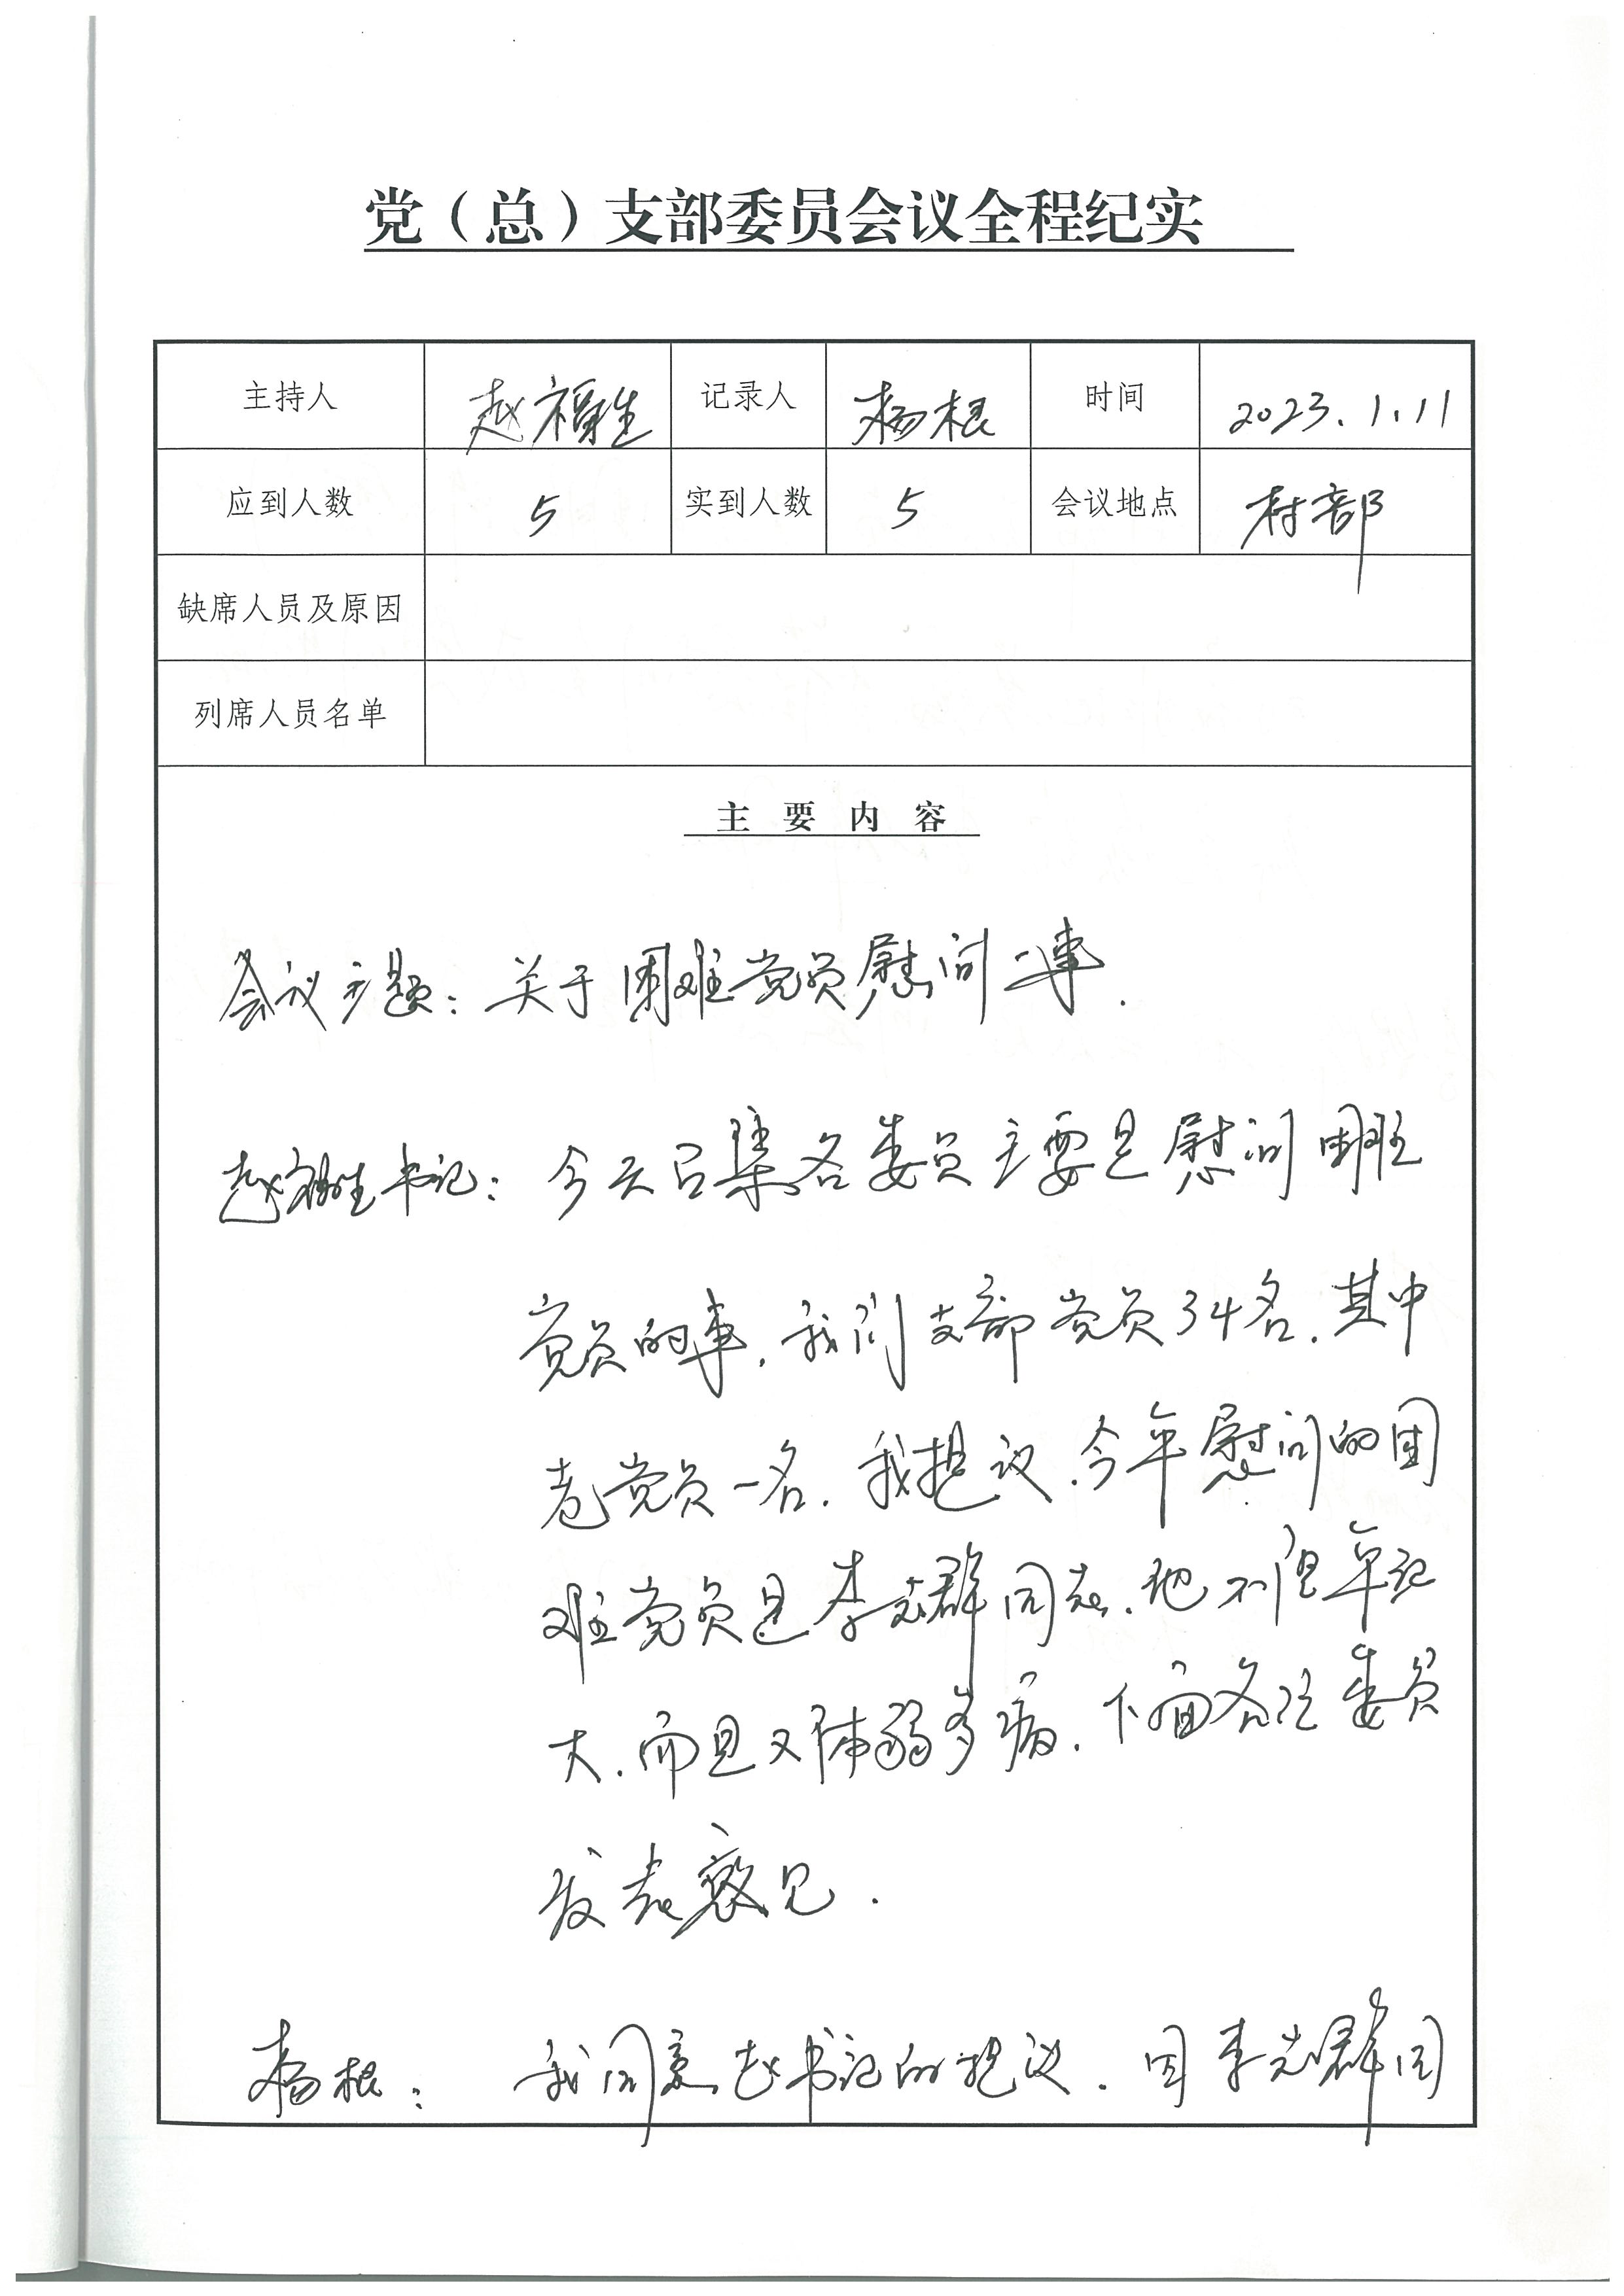 党（总）支部委员会议全程纪实
主持人 赵福生 记录人 杨根 时间 2023.1.11
应到人数 5 实到人数 5 会议地点 村部
缺席人员及原因
列席人员名单
主要内容
会议主题：关于困难党员慰问一事.
赵福生书记：今天召集各委员主要是慰问困难
党员的事.我们支部党员34名.其中
老党员一名.我提议.今年慰问的困
难党员是李志群同志.他不但年记
大.而且又体弱多病.下面各位委员
发表意见.
杨根：我同意赵书记的提议.因李志群同